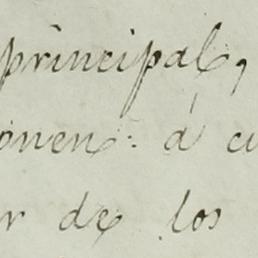 principal,
onen: á cu
r de los